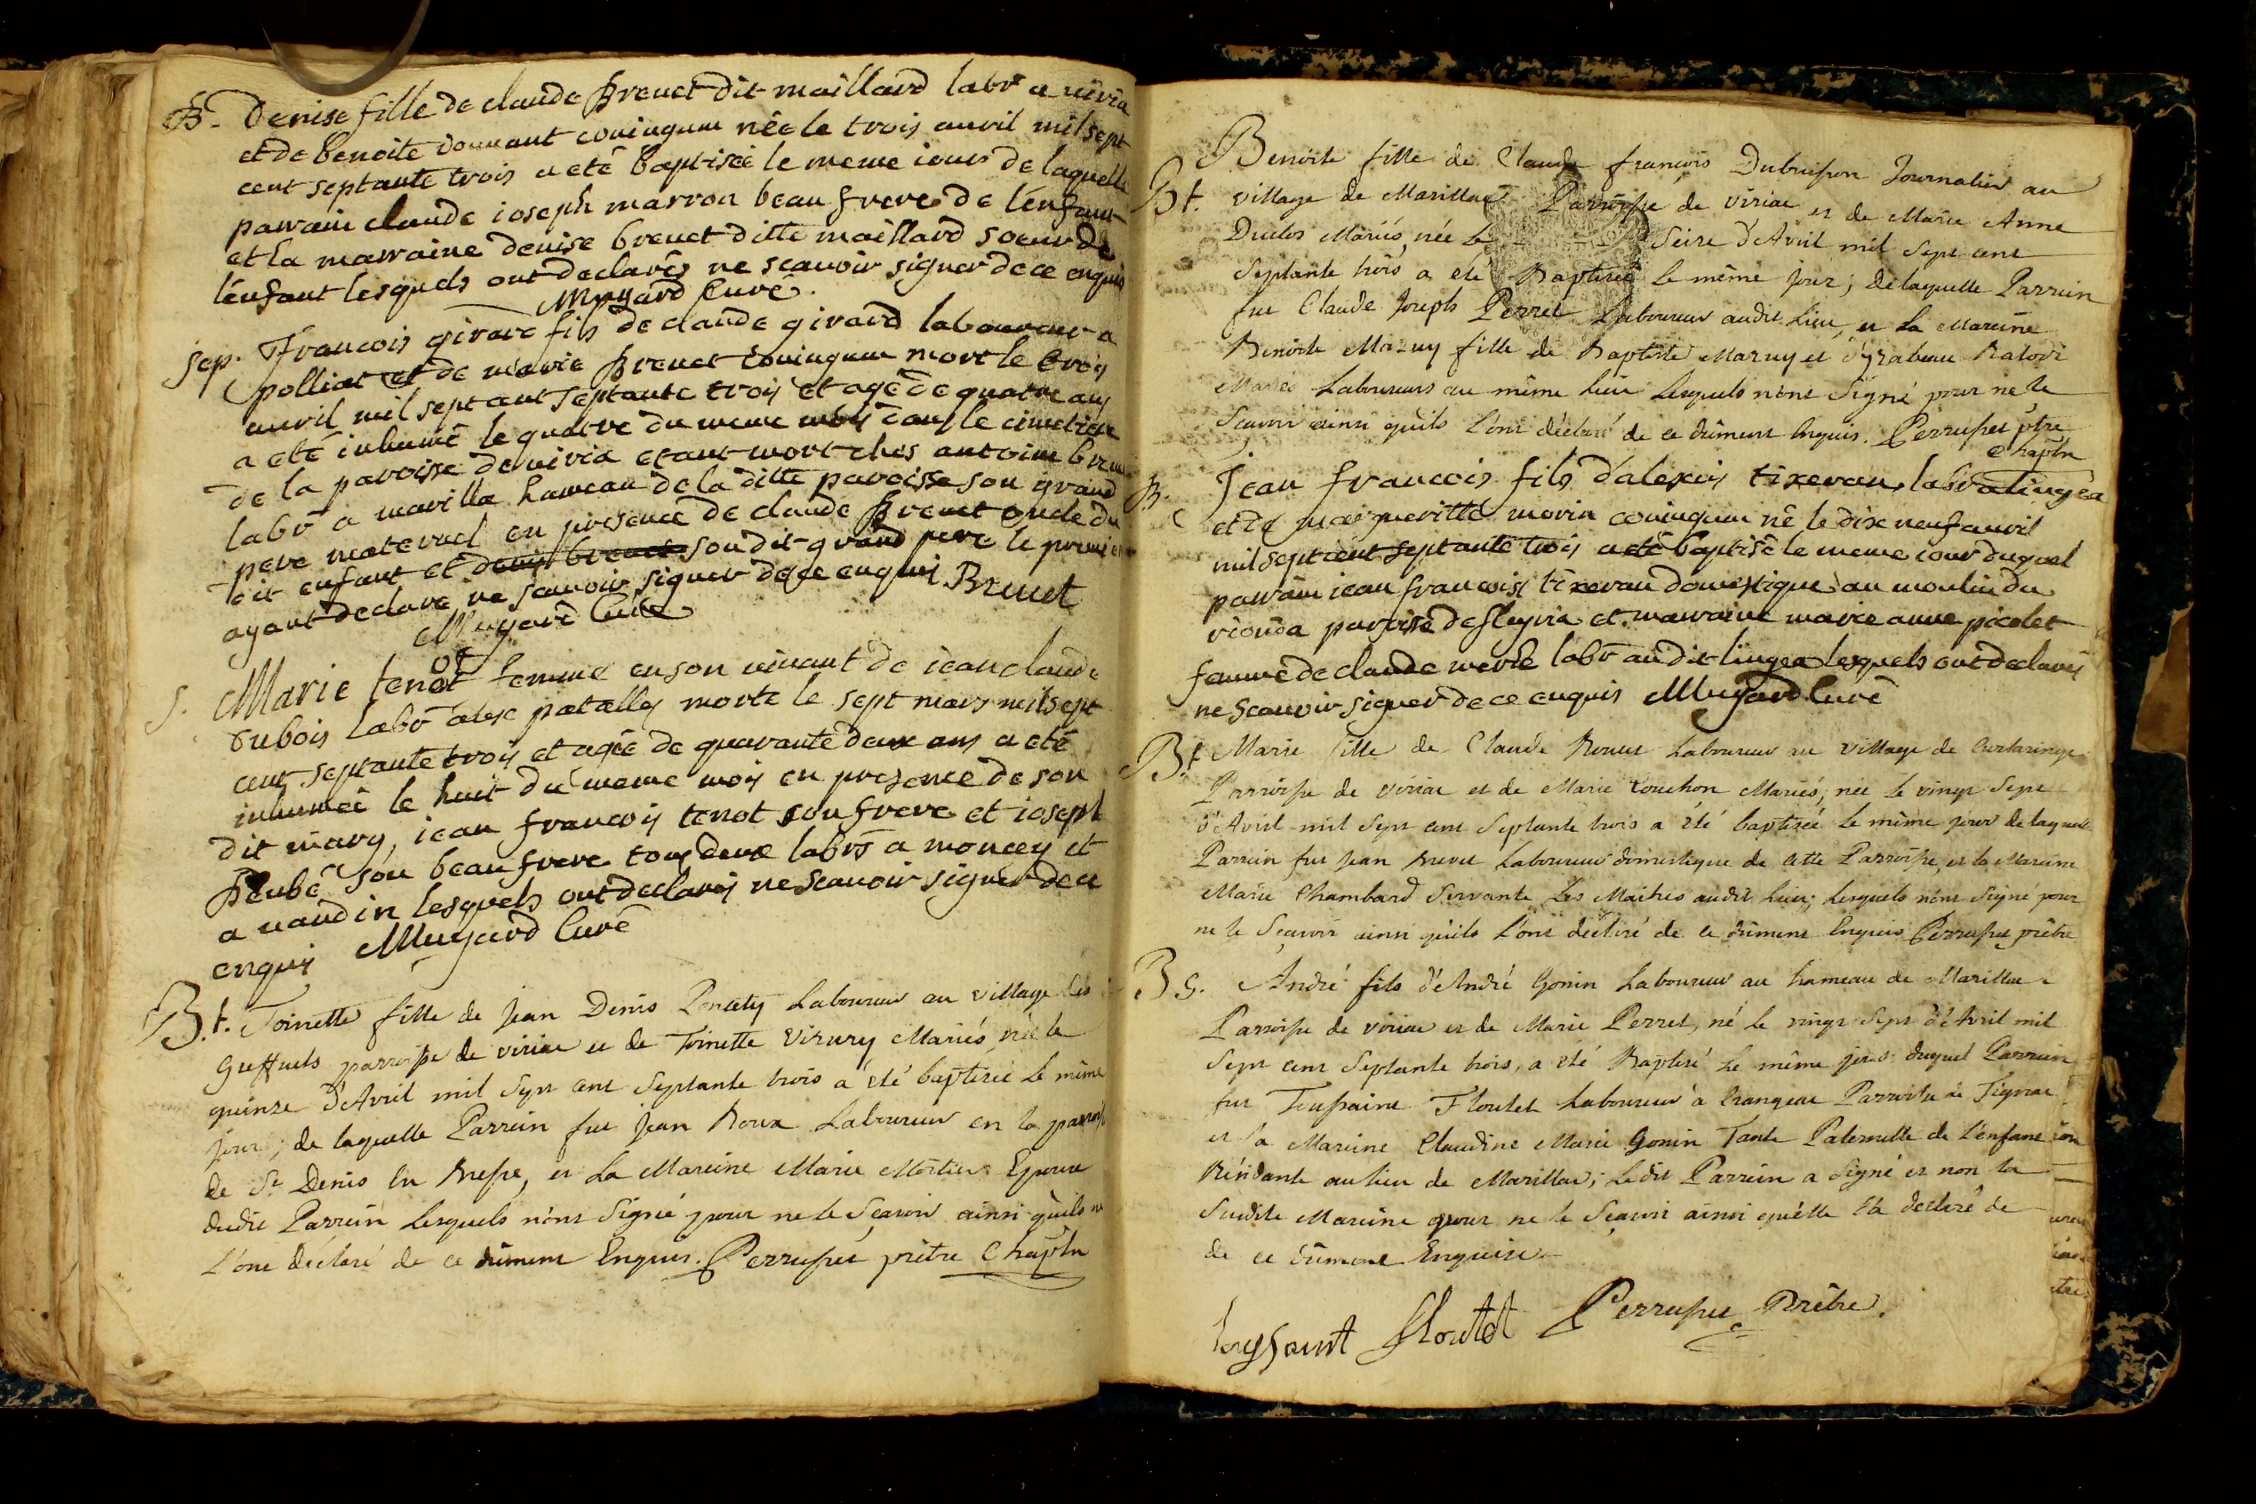 B. Denise fille de claude Brevet dit maillard labr a viria
et de benoite donnant coniugum née le trois avril mil sept
cent septante trois a eté baptisée le meme iour de laquelle
parrain claude ioseph marron beau frere de l'enfant
et la marraine denise brevet ditte maillard soeur de
l'enfant lesquels ont declarés ne scavoir signer de ce enquis
Mugard Curé
sep. Francois girard fils de claude girard laboureur a
polliat et de marie Brevet coniugum mort le trois
avril mil sept cent septante trois et agé de quatre ans
a eté inhumé le quatre du meme mois dans le cimetiere
de la paroisse de viria etant mort ches antoine breve
labr a marilla hameau de la ditte paroisse son grand
pere maternel en presence de claude Brevet oncle du
dit enfant et denis brevet son dit grand pere le premier
ayant declaré ne scavoir signer de ce enquis Brevet
Mugard Curé
S. Marie tenot femme en son vivant de iean claude
dubois labr alesc patalles morte le sept mars mil sept
cent septante trois et agée de quarante deux ans a eté
inhumée le huit du meme mois en presence de son
dit mary, iean francois tenot son frere et ioseph
Beubé son beau frere tous deux labrs a moncey et
a vaudin lesquels ont declarés ne scavoir signer de ce
enquis Mugard Curé
B.t. Toinette fille de Jean Denis Laboureur au village des
Greffuets parroisse de viriac et de Toinette Mariés, née le
quinze d'Avril mil sept cent septante trois a été baptisée le même
jour; de laquelle Parrein fut Jean Roux Laboureur en la parroisse
de St Denis en Bresse, et la Mareine Marie Mortier Epouse
dudit Parrein lesquels n'ont signé pour ne le Sçavoir ainsi qu'ils
l'ont déclaré de ce dûment Enquis. Perruset prêtre Chapln
Benoite fille de Claude françois Dubuisson Journalier au
Bt. village de Marillac Parroisse de viriac et de Marie Anne
Duclos Mariés, née le Seize d'Avril mil sept cent
septante trois a été Baptisée le même jour; de laquelle Parrein
fut Claude Joseph Perret Laboureur audit lieu, et la Mareine
Benoite Maruy fille de Baptiste Maruy et d'yzabeau
Mariés Laboureurs au même lieu lesquels n'ont signé pour ne le
Scavoir ainsi qu'ils l'ont déclaré de ce dûment Enquis. Perruset ptre
Chapln
B. Jean francois fils d'alexis tixeran, labr a lingea
et de margueritte morin coniugum né le dix neuf avril
mil sept cent septante trois a eté baptisé le meme iour duquel
parrain iean francois tixeran domestique au moulin du
rionda paroisse de fleyria et marraine marie anne picolet
femme de claude merle labr au dit lingea lesquels ont declarés
ne scavoir signer de ce enquis Mugard Curé
B.t Marie fille de Claude Laboureur au village de
Parroisse de viriac et de Marie Couchon Mariés, née le vingt sept
d'Avril mil sept cent septante trois a été baptisée le même jour de laquelle
Parrein fut Jean Brevet Laboureur domestique de cette Parroisse, et la Mareine
Marie Chambard Servante Les Maitres audit lieu; lesquels n'ont signé pour
ne le Sçavoir ainsi qu'ils l'ont déclaré de ce dûment Enquis Perruset prêtre
B g. André fils d'André Gonin Laboureur au hameau de Marillac
Parroisse de viriac et de Marie Perret, né le vingt sept d'Avril mil
sept cent septante trois, a été Baptisé le même jour duquel Parrein
fut Toussaint Floutet Laboureur à Parroisse de
et la Mareine Claudine Marie Gonin Tante Paternelle de l'enfant
Résidante au lieu de Marillac; Ledit Parrein a signé et non la
Susdite Mareine pour ne le Sçavoir ainsi qu'elle l'a declaré de
de ce dûment Enquise
toussaint floutet Perruset Prêtre.